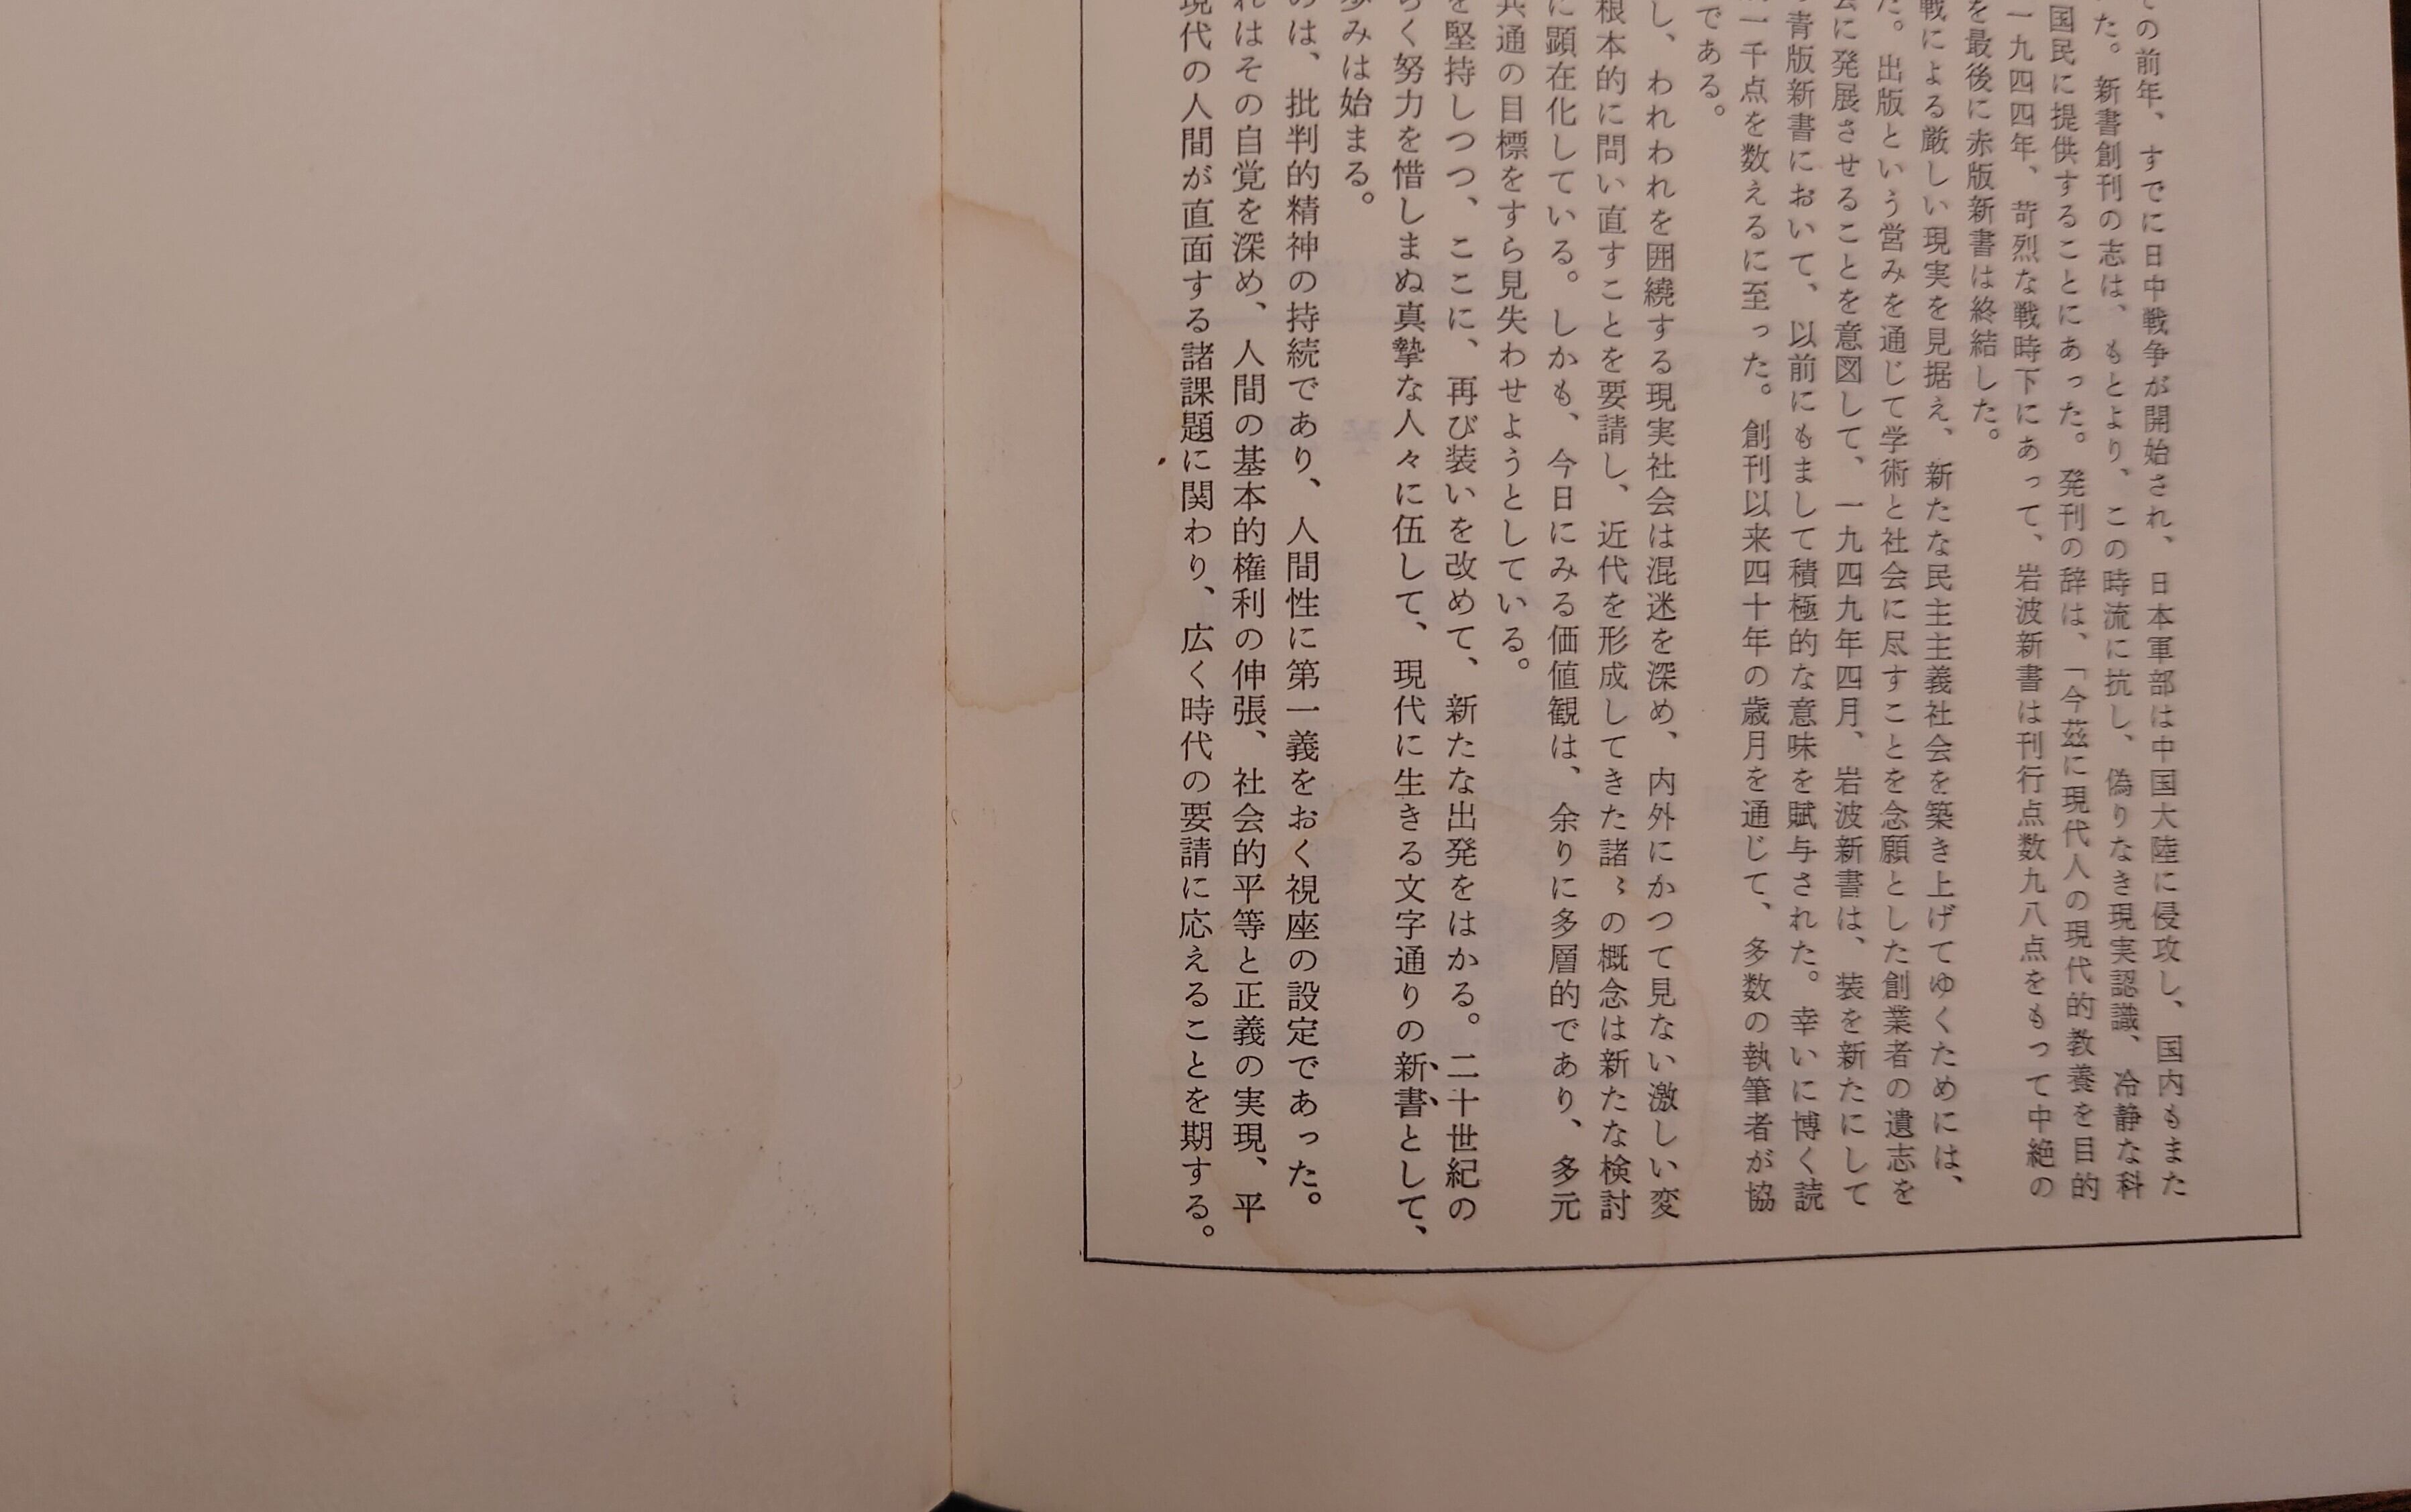 の前年、すでに日中戦争が開始され、日本軍部は中国大陸に侵攻し、国内もまた
た。新書創刊の志は、もとより、この時流に抗し、偽りなき現実認識、冷静な科
国民に提供することにあった。発刊の辞は、「今茲に現代人の現代的教養を目的
一九四四年、苛烈な戦時下にあって、岩波新書は刊行点数九八点をもって中絶の
を最後に赤版新書は終結した。
戦による厳しい現実を見据え、新たな民主主義社会を築き上げてゆくためには、
た。出版という営みを通じて学術と社会に尽すことを念願とした創業者の遺志を
会に発展させることを意図して、一九四九年四月、岩波新書は、装を新たにして
青版新書において、以前にもまして積極的な意味を賦与された。幸いに博く読
一千点を数えるに至った。創刊以来四十年の歳月を通じて、多数の執筆者が協
である。
し、われわれを囲繞する現実社会は混迷を深め、内外にかつて見ない激しい変
根本的に問い直すことを要請し、近代を形成してきた諸〻の概念は新たな検討
に顕在化している。しかも、今日にみる価値観は、余りに多層的であり、多元
共通の目標をすら見失わせようとしている。
を堅持しつつ、ここに、再び装いを改めて、新たな出発をはかる。二十世紀の
らく努力を惜しまぬ真摯な人々に伍して、現代に生きる文字通りの新書として、
歩みは始まる。
のは、批判的精神の持続であり、人間性に第一義をおく視座の設定であった。
れはその自覚を深め、人間の基本的権利の伸張、社会的平等と正義の実現、平
現代の人間が直面する諸課題に関わり、広く時代の要請に応えることを期する。